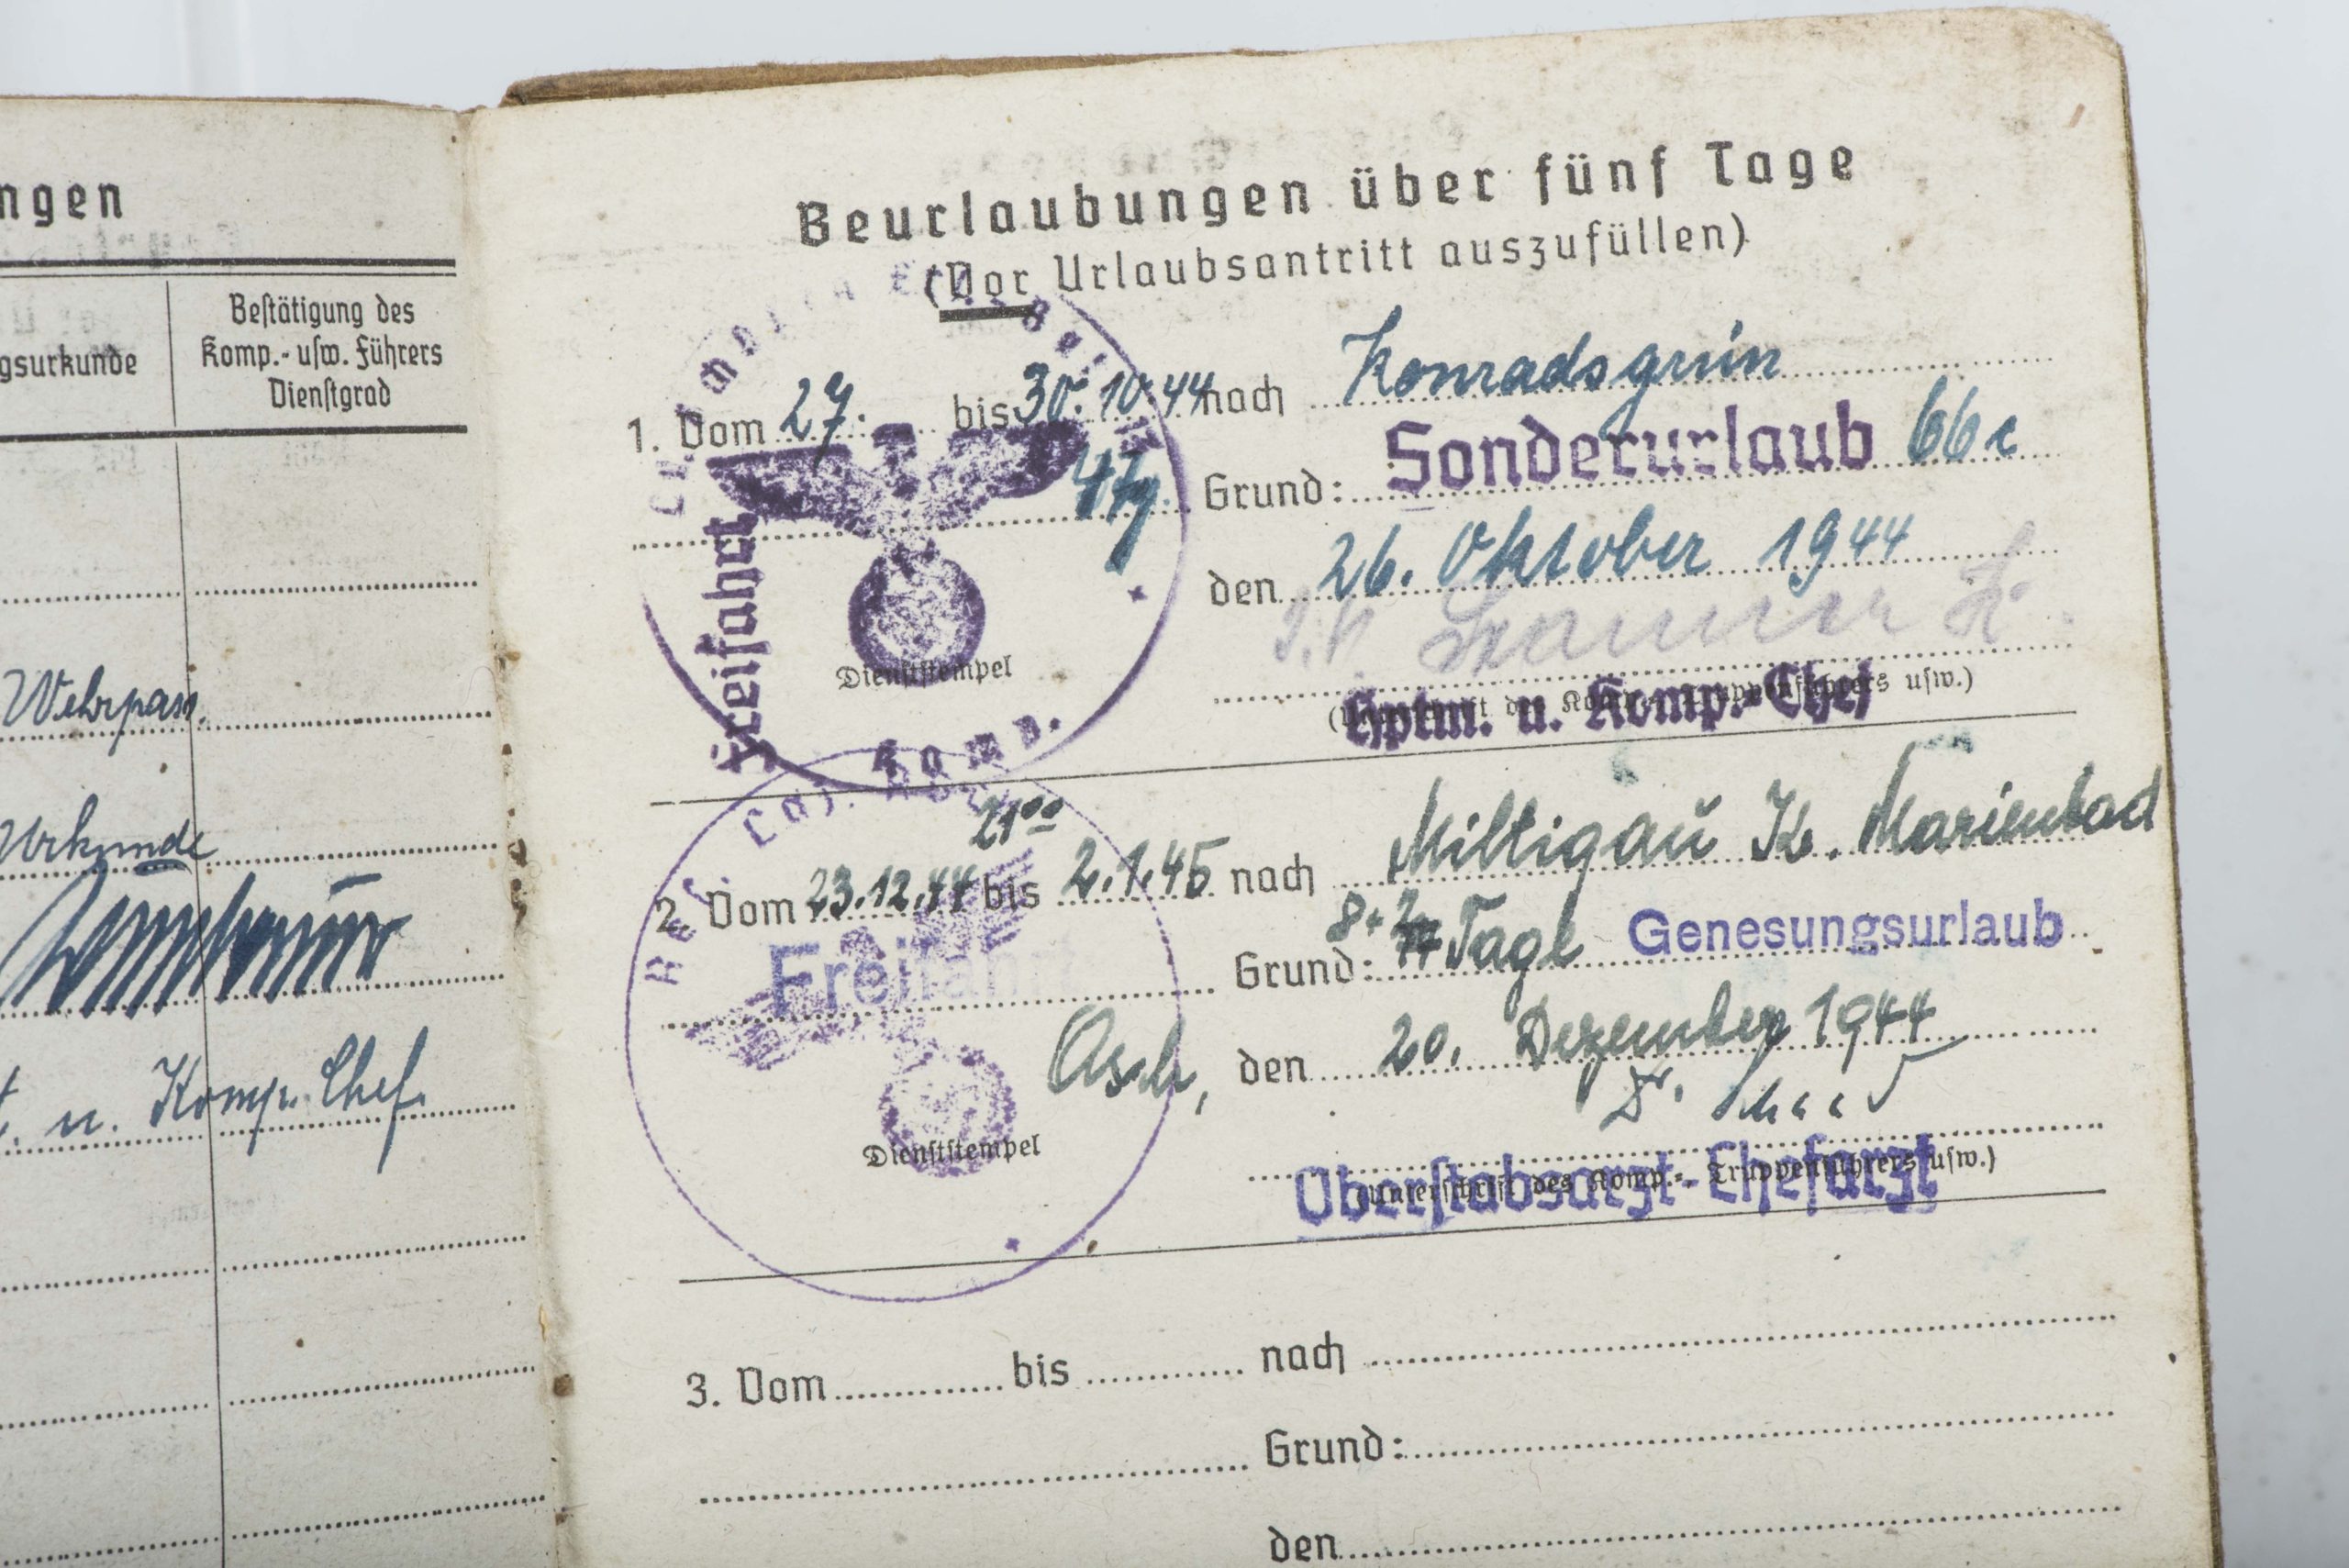 ngen
gsurkunde
Bestätigung des
Komp.- usw. Führers
Dienstgrad
Wehrpass.
Urkunde
u. Komp. Chef.
Beurlaubungen über fünf Tage
(Vor Urlaubsantritt auszufüllen)
1. Vom 27. bis 30.10.44 nach Konradsgrün
Grund: Sonderurlaub 66c
Freifahrt
den 26. Oktober 1944
Dienststempel
(Unterschrift des Komp.-, Truppenführers usw.)
Hptm. u. Komp.-Chef
Komp.
21⁰⁰
2. Vom 23.12.44 bis 2.1.45 nach Miltigau Kr. Marienbad
Grund: 8+2 Tage Genesungsurlaub
Freifahrt
Res. Laz.
Asch, den 20. Dezember 1944
Dr.
Dienststempel
(Unterschrift des Komp.-, Truppenführers usw.)
Oberstabsarzt-Chefarzt
3. Vom bis nach
Grund:
den